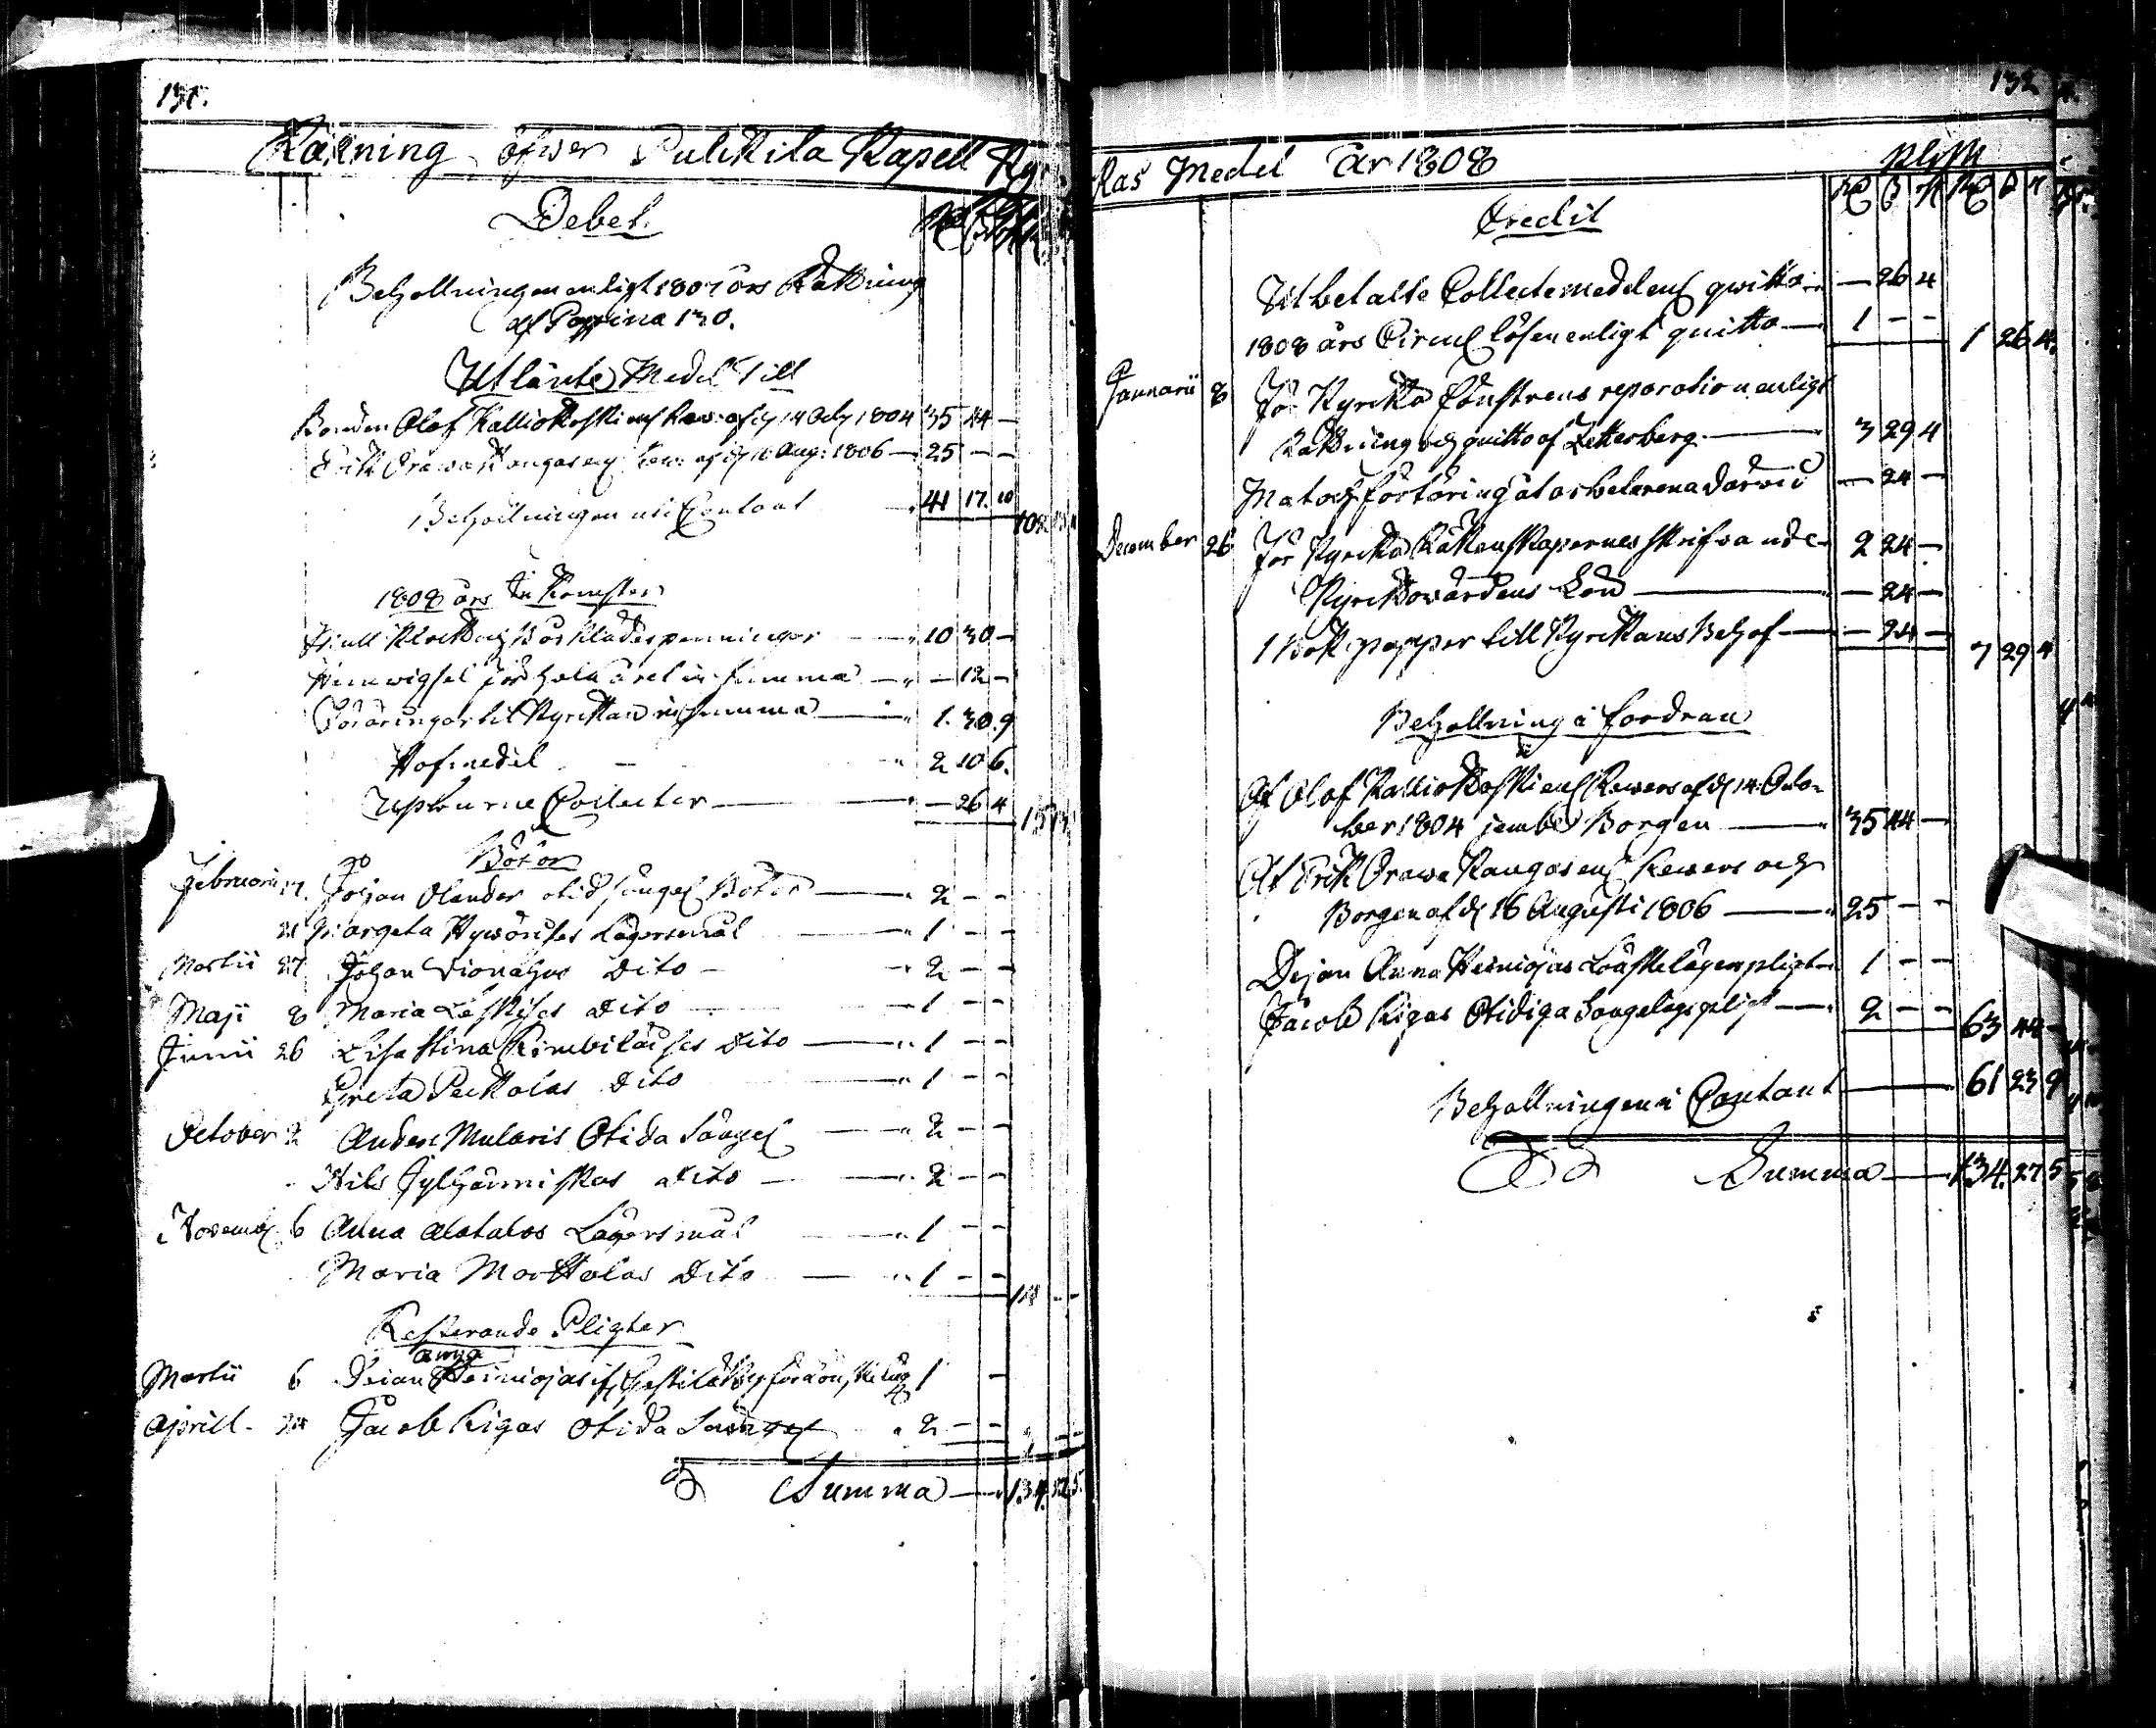 131.
Räkning öfwer Pulkkila Kapell Ky-
Debet.
Behollningen enligt 1807 års Räkning
af Paggina 130.
Utlänte Medel Till
Bonden Olof Kalliokoski enl Rev: af d 14 Octb 1804 35 44 —
Erik Orawa Kangas enl Rev: af d 16 Aug: 1806 — 25 — —
Behollningen uti Contant 41 17. 10
102
1808 års Inkomster
Klock och Bårklädespenningar — 10 30 —
Hemwigsel för hela året in summa — — 12 —
Föräringar til Kyrkan in summa — 1. 30. 9
Hofmedel — 2 10 6.
Upburne Collecter — — 26 4
15
Böter
Februarii 17. Johan Olander otid sänges Böter — 2 — —
21 Margeta Hywärises Lägersmål — 1 — —
Martii 27 Johan Dito — 2 — —
Maji 8 Maria Leskises Dito — 1 — —
Junii 26 Lisa Stina Kimbiläises Dito — 1 — —
Greta Peckolas Dito — 1 — —
October 2 Anders Mularis Otida Sängel — 2 — —
Nils Jylhänniskas Dito — 2 — —
Novemb 6 Anna Alatalos Lägersmål — 1 — —
Maria Markkolas Dito — 1 — —
14 — —
Resterande Pligter
Martii 6 Peian Anna Heiniojas 1 —
Aprill. 24 Jacob Kigas Otida Sängel 2 — —
3 — —
Summa — 134. 27 5.
132
kas Medel år 1808
Credit
Utbetalte Collectemedel enl qwitto — — 26 4
1808 års Circul lösen enligt quitto — 1 — —
1 26 4.
Januarii 8 För Kyrko Fönstrens reparation enligt
Räkning och quitto af Zetterberg. — 3 29 4
Mat och förtäring åt arbetarena därvid — 24 —
December 26 För Kyrko Räkenskapernes skrifvande 2 24 —
Kyrkowärdens Lön — — 24 —
1 Bok papper till Kyrkans Behof — — 24 —
7 29 4
Behollning i fordran
Af Olof Kalliokoski enl Revers af d 14 Octo-
ber 1804 jembte Borgen — 35 44 —
Af Erik Orawa Kangas enl Revers och
Borgen af d 16 Augusti 1806 — 25 — —
Pejan Anna Heiniojas Löskelägerspligt — 1 — —
Jacob Kigas Otidiga Sängelags pligt — 2 — —
63 44 —
Behollningen i Contant — 61 23 9
Summa — 134. 27 5